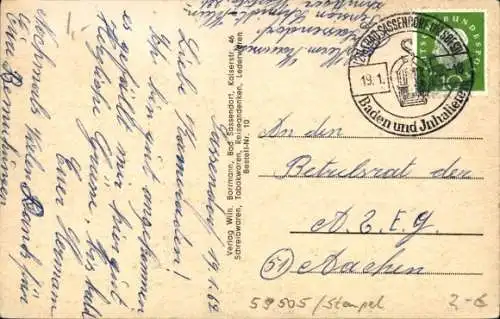 Sassendorf 19.1.62
Liebe Kameraden!
Bin gut angekommen
es gefällt mir prima
Herzliche Grüsse, bis bald
Euer Hermann
Nochmals Vielen Dank für
Eure Bemühungen
Verlag Wilh. Borrmann, Bad Sassendorf, Kaiserstr. 46
Schreibwaren, Tabakwaren, Reiseandenken, Lederwaren
Bestell-Nr. 10
BAD SASSENDORF
19.1.
Baden und Inhalieren
BUNDESPOST
10
An den
Betriebsrat der
A.S.E.G.
51 Aachen
59505/Stempel
2-€